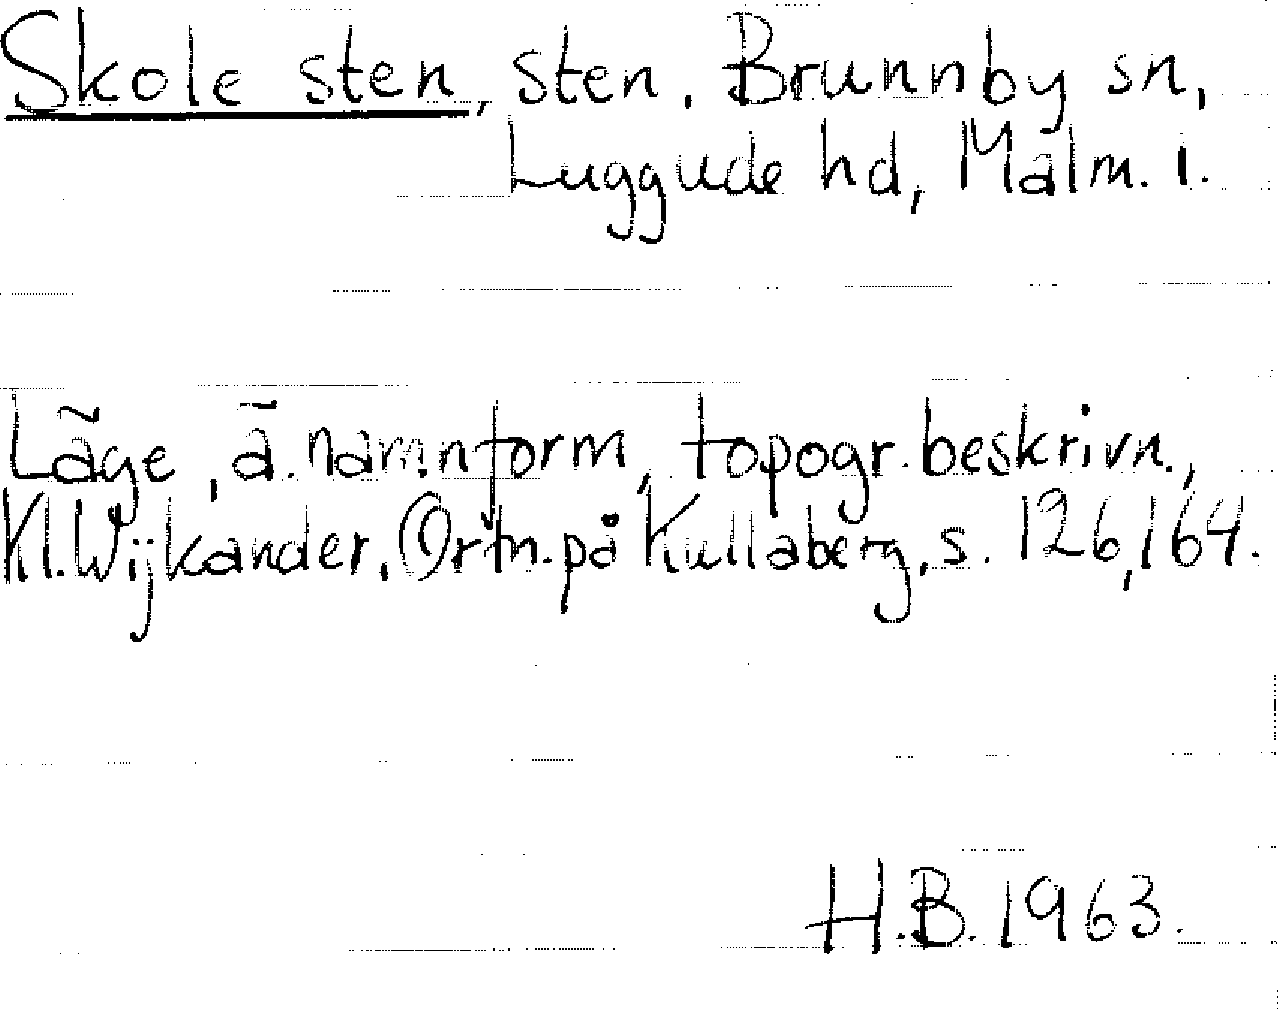 Skole sten, sten, Brunnby sn,
Luggude hd, Malm. l.
Läge, ä. namnform, topogr. beskrivn.,
Kl. Wijkander, Ortn. på Kullaberg, s. 126, 164.
H.B. 1963.